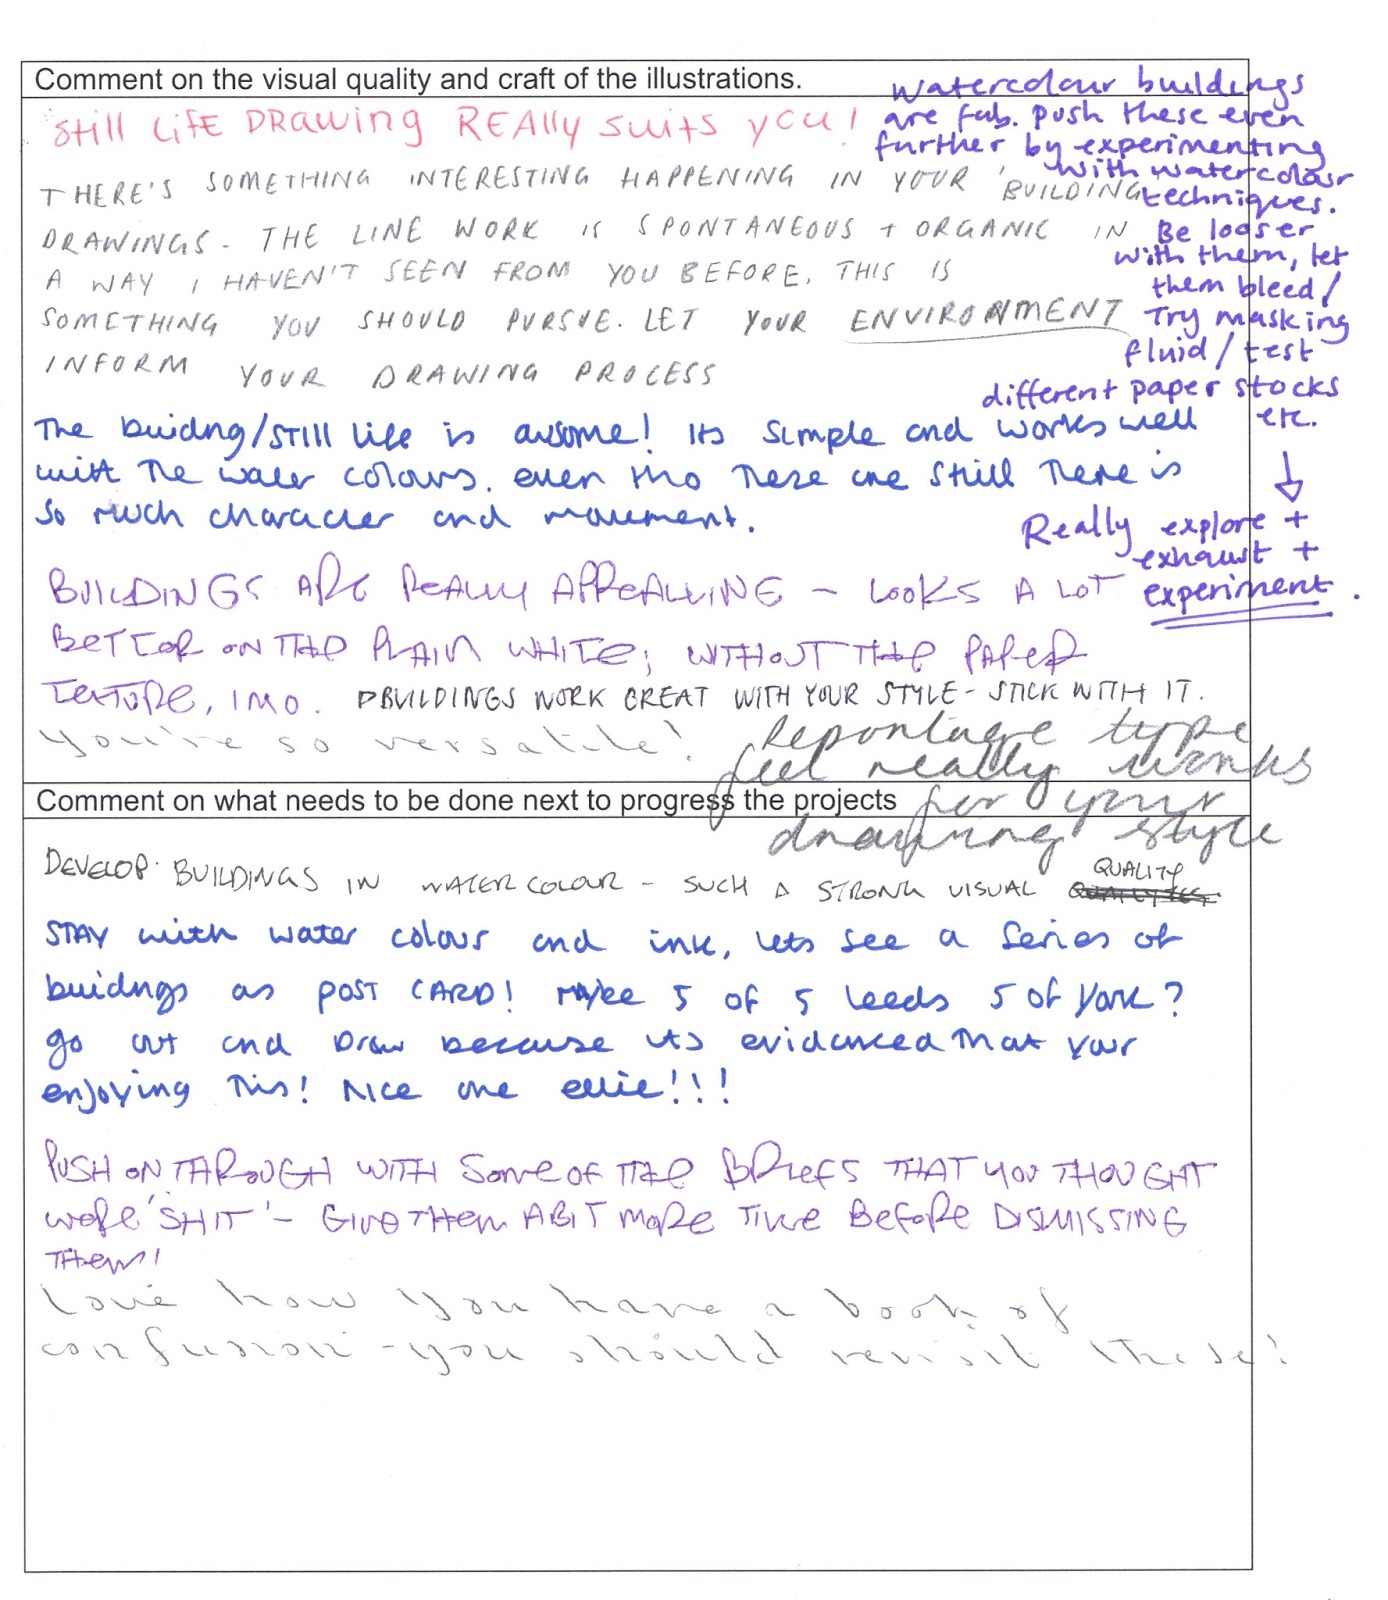 Comment on the visual quality and craft of the illustrations.
Still Life Drawing REAlly suits you!
THERE'S SOMETHING INTERESTING HAPPENING IN YOUR 'BUILDING
DRAWINGS. THE LINE WORK IS SPONTANEOUS + ORGANIC IN
A WAY I HAVEN'T SEEN FROM YOU BEFORE, THIS IS
SOMETHING YOU SHOULD PURSUE. LET YOUR ENVIRONMENT
INFORM YOUR DRAWING PROCESS
watercolour buildings
are fab. push these even
further by experimenting
with watercolour
techniques.
Be looser
with them, let
them bleed/
Try masking
fluid/test
different paper stocks
etc.
↓
Really explore +
exhaust +
experiment.
The buidng/STILL life is awsome! Its simple and works well
with The water colours. even tho These are still There is
so much character and movement.
BUILDINGS ARE REALLY APPEALLING – LOOKS A LOT
BETTER ON THE PLAIN WHITE; WITHOUT THE PAPER
TEXTURE, IMO. BUILDINGS WORK GREAT WITH YOUR STYLE - STICK WITH IT.
you're so versatile!
Reportage type
feel really works
for your
drawing style
Comment on what needs to be done next to progress the projects
DEVELOP BUILDINGS IN WATER COLOUR – SUCH A STRONG VISUAL QUALITY
STAY with water colour and ink, lets see a series of
buidngs as POST CARD! Maybe 5 of 5 Leeds 5 of York?
go out and Draw because its evidenced That your
enjoying This! Nice one ellie!!!
PUSH ON THROUGH WITH SOME OF THE BRIEFS THAT YOU THOUGHT
WERE 'SHIT' – GIVE THEM A BIT MORE TIME BEFORE DISMISSING
THEM!
Love how you have a book of
confusion - you should revisit these!